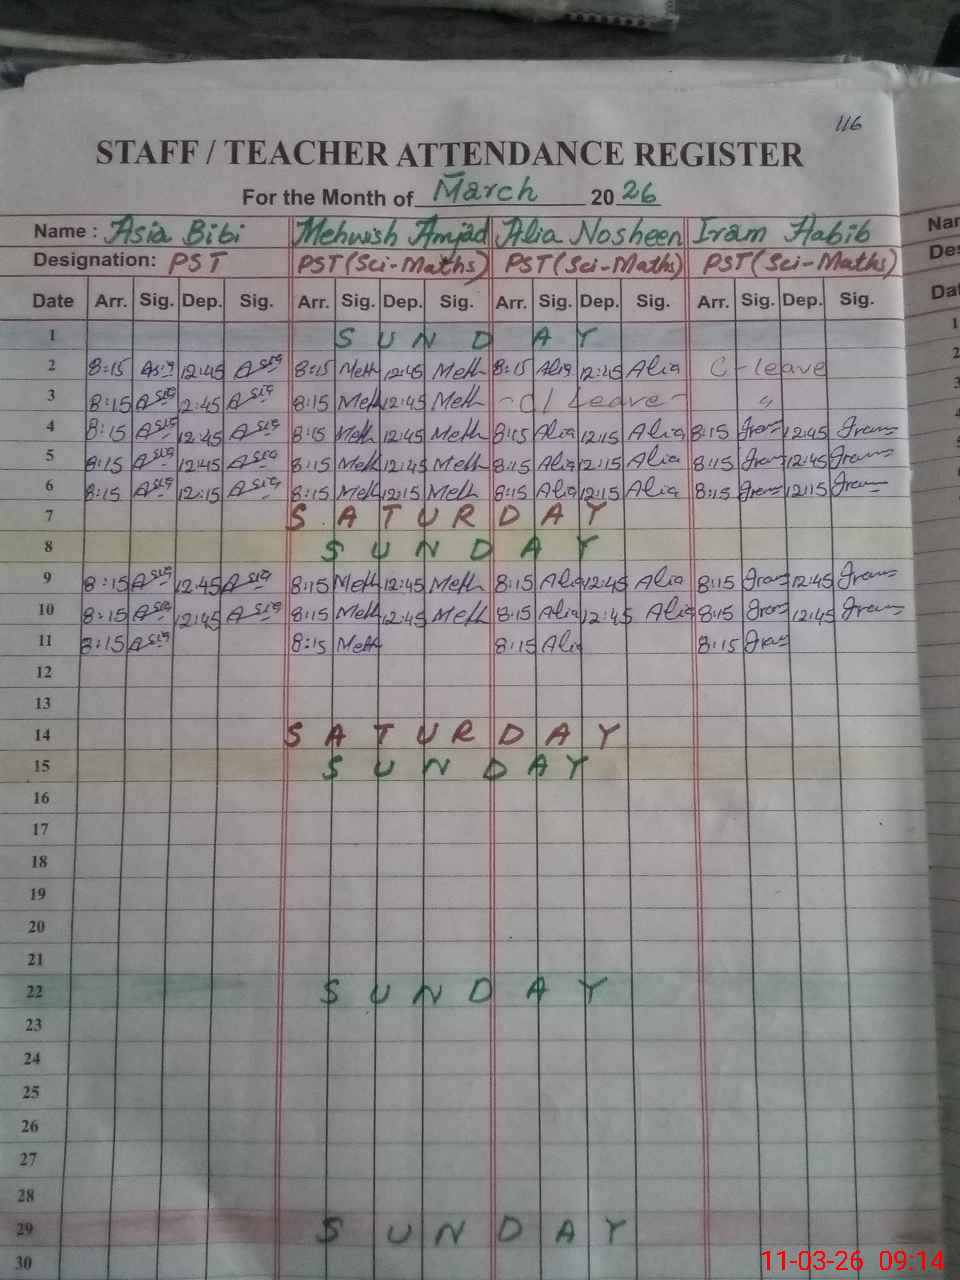 116
STAFF / TEACHER ATTENDANCE REGISTER
For the Month of March 2026
Name : Asia Bibi Mehwish Amjad Alia Nosheen Iram Habib Nar
Designation: PST PST (Sci-Maths) PST (Sci-Maths) PST (Sci-Maths) Des
Date Arr. Sig. Dep. Sig. Arr. Sig. Dep. Sig. Arr. Sig. Dep. Sig. Arr. Sig. Dep. Sig. Dat
1 SUNDAY
2 8:15 12:45 8:15 Meh 12:45 Meh 8:15 Alia 12:45 Alia C-leave
3 8:15 2:45 8:15 Meh 12:45 Meh -C/Leave- "
4 8:15 12:45 8:15 Meh 12:45 Meh 8:15 Alia 12:15 Alia 8:15 12:45
5 8:15 12:45 8:15 Meh 12:45 Meh 8:15 Alia 12:15 Alia 8:15 12:45
6 8:15 12:15 8:15 Meh 12:15 Meh 8:15 Alia 12:15 Alia 8:15 12:15
7 SATURDAY
8 SUNDAY
9 8:15 12:45 8:15 Meh 12:45 Meh 8:15 Alia 12:45 Alia 8:15 12:45
10 8:15 12:45 8:15 Meh 12:45 Meh 8:15 Alia 12:45 Alia 8:15 12:45
11 8:15 8:15 Meh 8:15 Alia 8:15
12
13
14 SATURDAY
15 SUNDAY
16
17
18
19
20
21
22 SUNDAY
23
24
25
26
27
28
29 SUNDAY
30
11-03-26 09:14